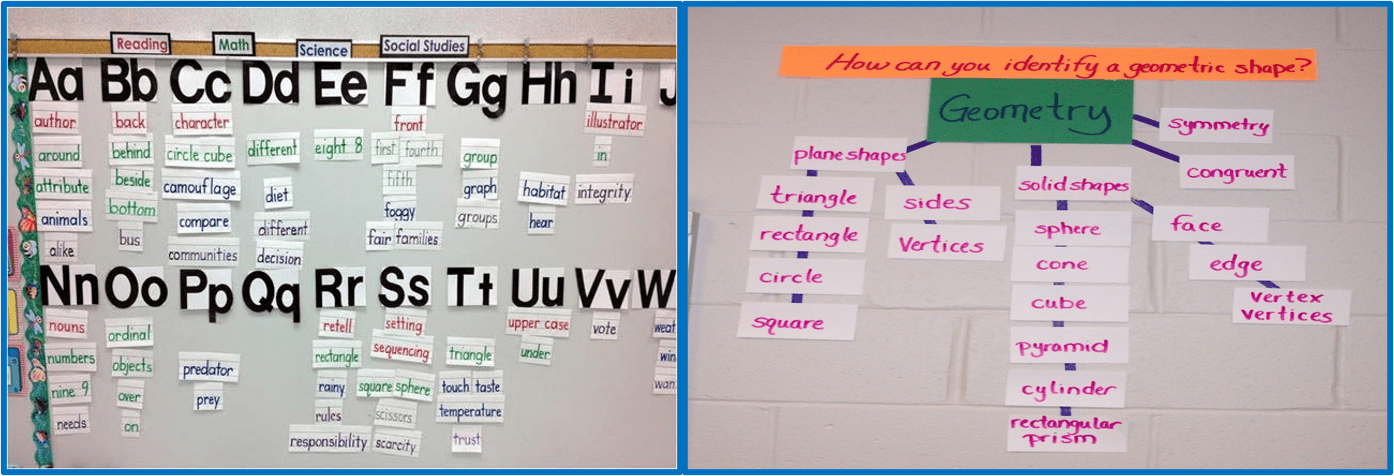 Reading Math Science Social Studies
Aa Bb Cc Dd Ee Ff Gg Hh Ii J
author back character front illustrator
around behind circle cube different eight 8 first fourth group in
attribute beside camouflage diet fifth graph habitat integrity
animals bottom compare different foggy groups hear
alike bus communities decision fair families
Nn Oo Pp Qq Rr Ss Tt Uu Vv W
nouns ordinal retell setting upper case vote
numbers objects predator rectangle sequencing triangle under
nine 9 over prey rainy square sphere touch taste
needs on rules scissors temperature
responsibility scarcity trust
How can you identify a geometric shape?
Geometry
symmetry
congruent
plane shapes
triangle
rectangle
circle
square
sides
vertices
solid shapes
sphere
cone
cube
pyramid
cylinder
rectangular
prism
face
edge
vertex
vertices